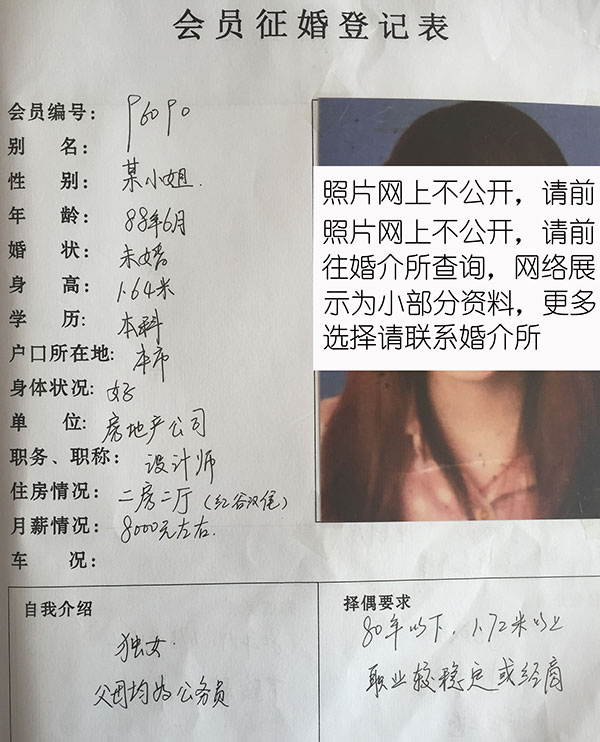 会员征婚登记表
会员编号: P60P0
别 名:
性 别: 某小姐.
年 龄: 88年6月
婚 状: 未婚
身 高: 1.64米
学 历: 本科
户口所在地: 本市
身体状况: 好
单 位: 房地产公司
职务、职称: 设计师
住房情况: 二房二厅(红谷汉隆)
月薪情况: 8000元左右.
车 况:
照片网上不公开，请前
照片网上不公开，请前
往婚介所查询，网络展
示为小部分资料，更多
选择请联系婚介所
自我介绍
独女.
父母均为公务员
择偶要求
80年以下. 1.72米以上
职业较稳定或经商